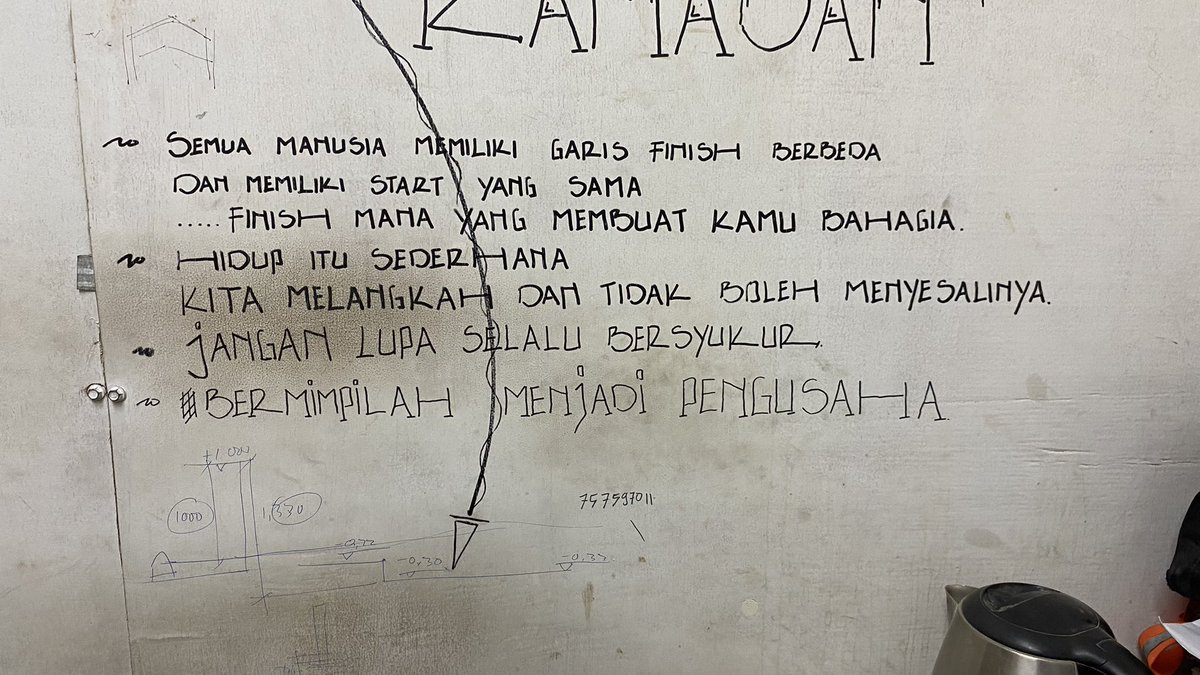 ~ SEMUA MANUSIA MEMILIKI GARIS FINISH BERBEDA
DAN MEMILIKI START YANG SAMA
..... FINISH MANA YANG MEMBUAT KAMU BAHAGIA.
~ HIDUP ITU SEDERHANA
KITA MELANGKAH DAN TIDAK BOLEH MENYESALINYA.
~ JANGAN LUPA SELALU BERSYUKUR.
~ #BERMIMPILAH MENJADI PENGUSAHA
+1.000
1000
1,330
757597011
-0,30